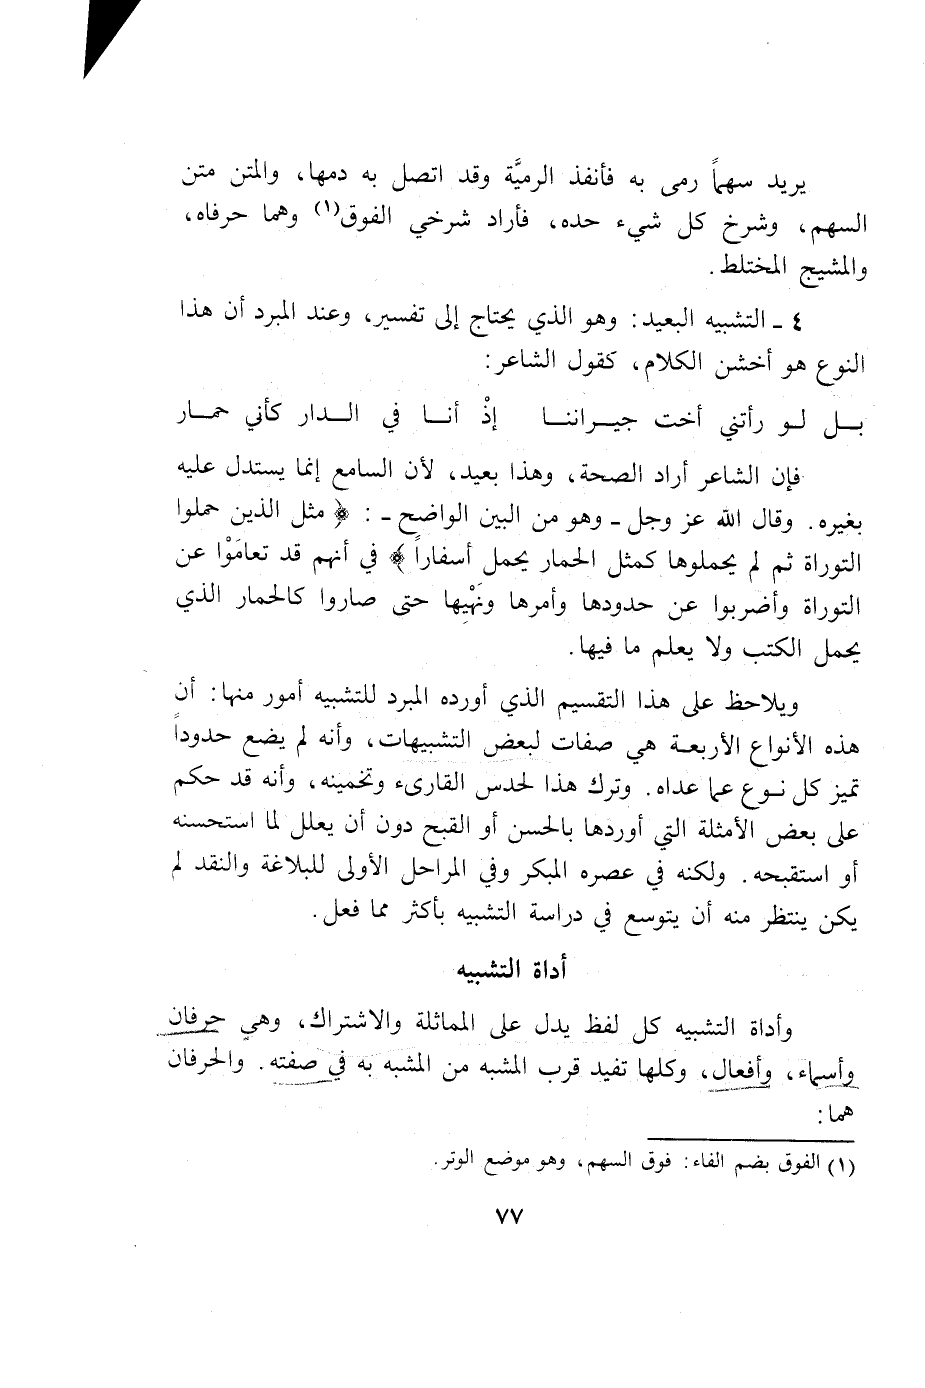 يريد سهماً رمى به فأنفذ الرميَّة وقد اتصل به دمها، والمتن متن
السهم، وشرخ كل شيء حده، فأراد شرخي الفوق(١) وهما حرفاه،
والمشيج المختلط.
٤ ـ التشبيه البعيد: وهو الذي يحتاج إلى تفسير، وعند المبرد أن هذا
النوع هو أخشن الكلام، كقول الشاعر:
بــل لــو رأتني أخت جيــراننــا إذْ أنــا في الــدار كأني حمــار
فإن الشاعر أراد الصحة، وهذا بعيد، لأن السامع إنما يستدل عليه
بغيره. وقال الله عز وجل ـ وهو من البين الواضح ـ : ﴿ مثل الذين حملوا
التوراة ثم لم يحملوها كمثل الحمار يحمل أسفاراً ﴾ في أنهم قد تعامَوْا عن
التوراة وأضربوا عن حدودها وأمرها ونَهْيِها حتى صاروا كالحمار الذي
يحمل الكتب ولا يعلم ما فيها.
ويلاحظ على هذا التقسيم الذي أورده المبرد للتشبيه أمور منها: أن
هذه الأنواع الأربعة هي صفات لبعض التشبيهات، وأنه لم يضع حدوداً
تميز كل نوع عما عداه. وترك هذا لحدس القارىء وتخمينه، وأنه قد حكم
على بعض الأمثلة التي أوردها بالحسن أو القبح دون أن يعلل لما استحسنه
أو استقبحه. ولكنه في عصره المبكر وفي المراحل الأولى للبلاغة والنقد لم
يكن ينتظر منه أن يتوسع في دراسة التشبيه بأكثر مما فعل.
أداة التشبيه
وأداة التشبيه كل لفظ يدل على المماثلة والاشتراك، وهي حرفان
وأسماء، وأفعال، وكلها تفيد قرب المشبه من المشبه به في صفته. والحرفان
هما:
(١) الفوق بضم الفاء: فوق السهم، وهو موضع الوتر.
٧٧